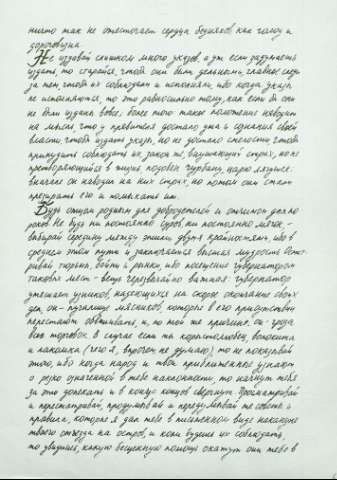 ничто так не ожесточает сердца бедняков как голод и
дороговизна.
Не издавай слишком много указов, а уж если задумаешь
издать, то старайся, чтоб они были дельными, главное следи
за тем чтоб их соблюдали и исполняли, ибо когда указы
не исполняются, то это равносильно тому, как если бы они
не были изданы вовсе; более того такое положение наводит
на мысль что у правителя достало ума и сознания своей
власти чтобы издать указы, но не достало смелости чтобы
принудить соблюдать их, закон же, внушающий страх, но не
претворяющийся в жизнь подобен чурбану, царю лягушек:
вначале он наводил на них страх, но потом они стали
презирать его и помыкать им.
Будь отцом родным для добродетелей и отчимом для по
роков. Не будь ни постоянно суров, ни постоянно мягок -
выбирай середину между этими двумя крайностями, ибо в
среднем этом пути и заключается высшая мудрость. Осмат
ривай тюрьмы, бойни и рынки, ибо посещение губернатором
таковых мест - вещь чрезвычайно важная: губернатор
утешает узников, надеющихся на скорое окончание своих
дел, он - пугалище мясников, которые в его присутствии
перестают обвешивать, и, по той же причине, он - гроза
всех торговок. В случае если ты корыстолюбец, волокита
и лакомка (чего я, впрочем не думаю), то не показывай
этого, ибо когда народ и твои приближенные узнают
о резко означенной в тебе наклонности то начнут тебя
за это допекать и в конце концов свергнут. Просматривай
и пересматривай, продумывай и передумывай те советы и
правила, которые я дал тебе в письменном виде накануне
твоего отъезда на остров, и коли будешь их соблюдать,
то увидишь, какую бесценную помощь окажут они тебе в